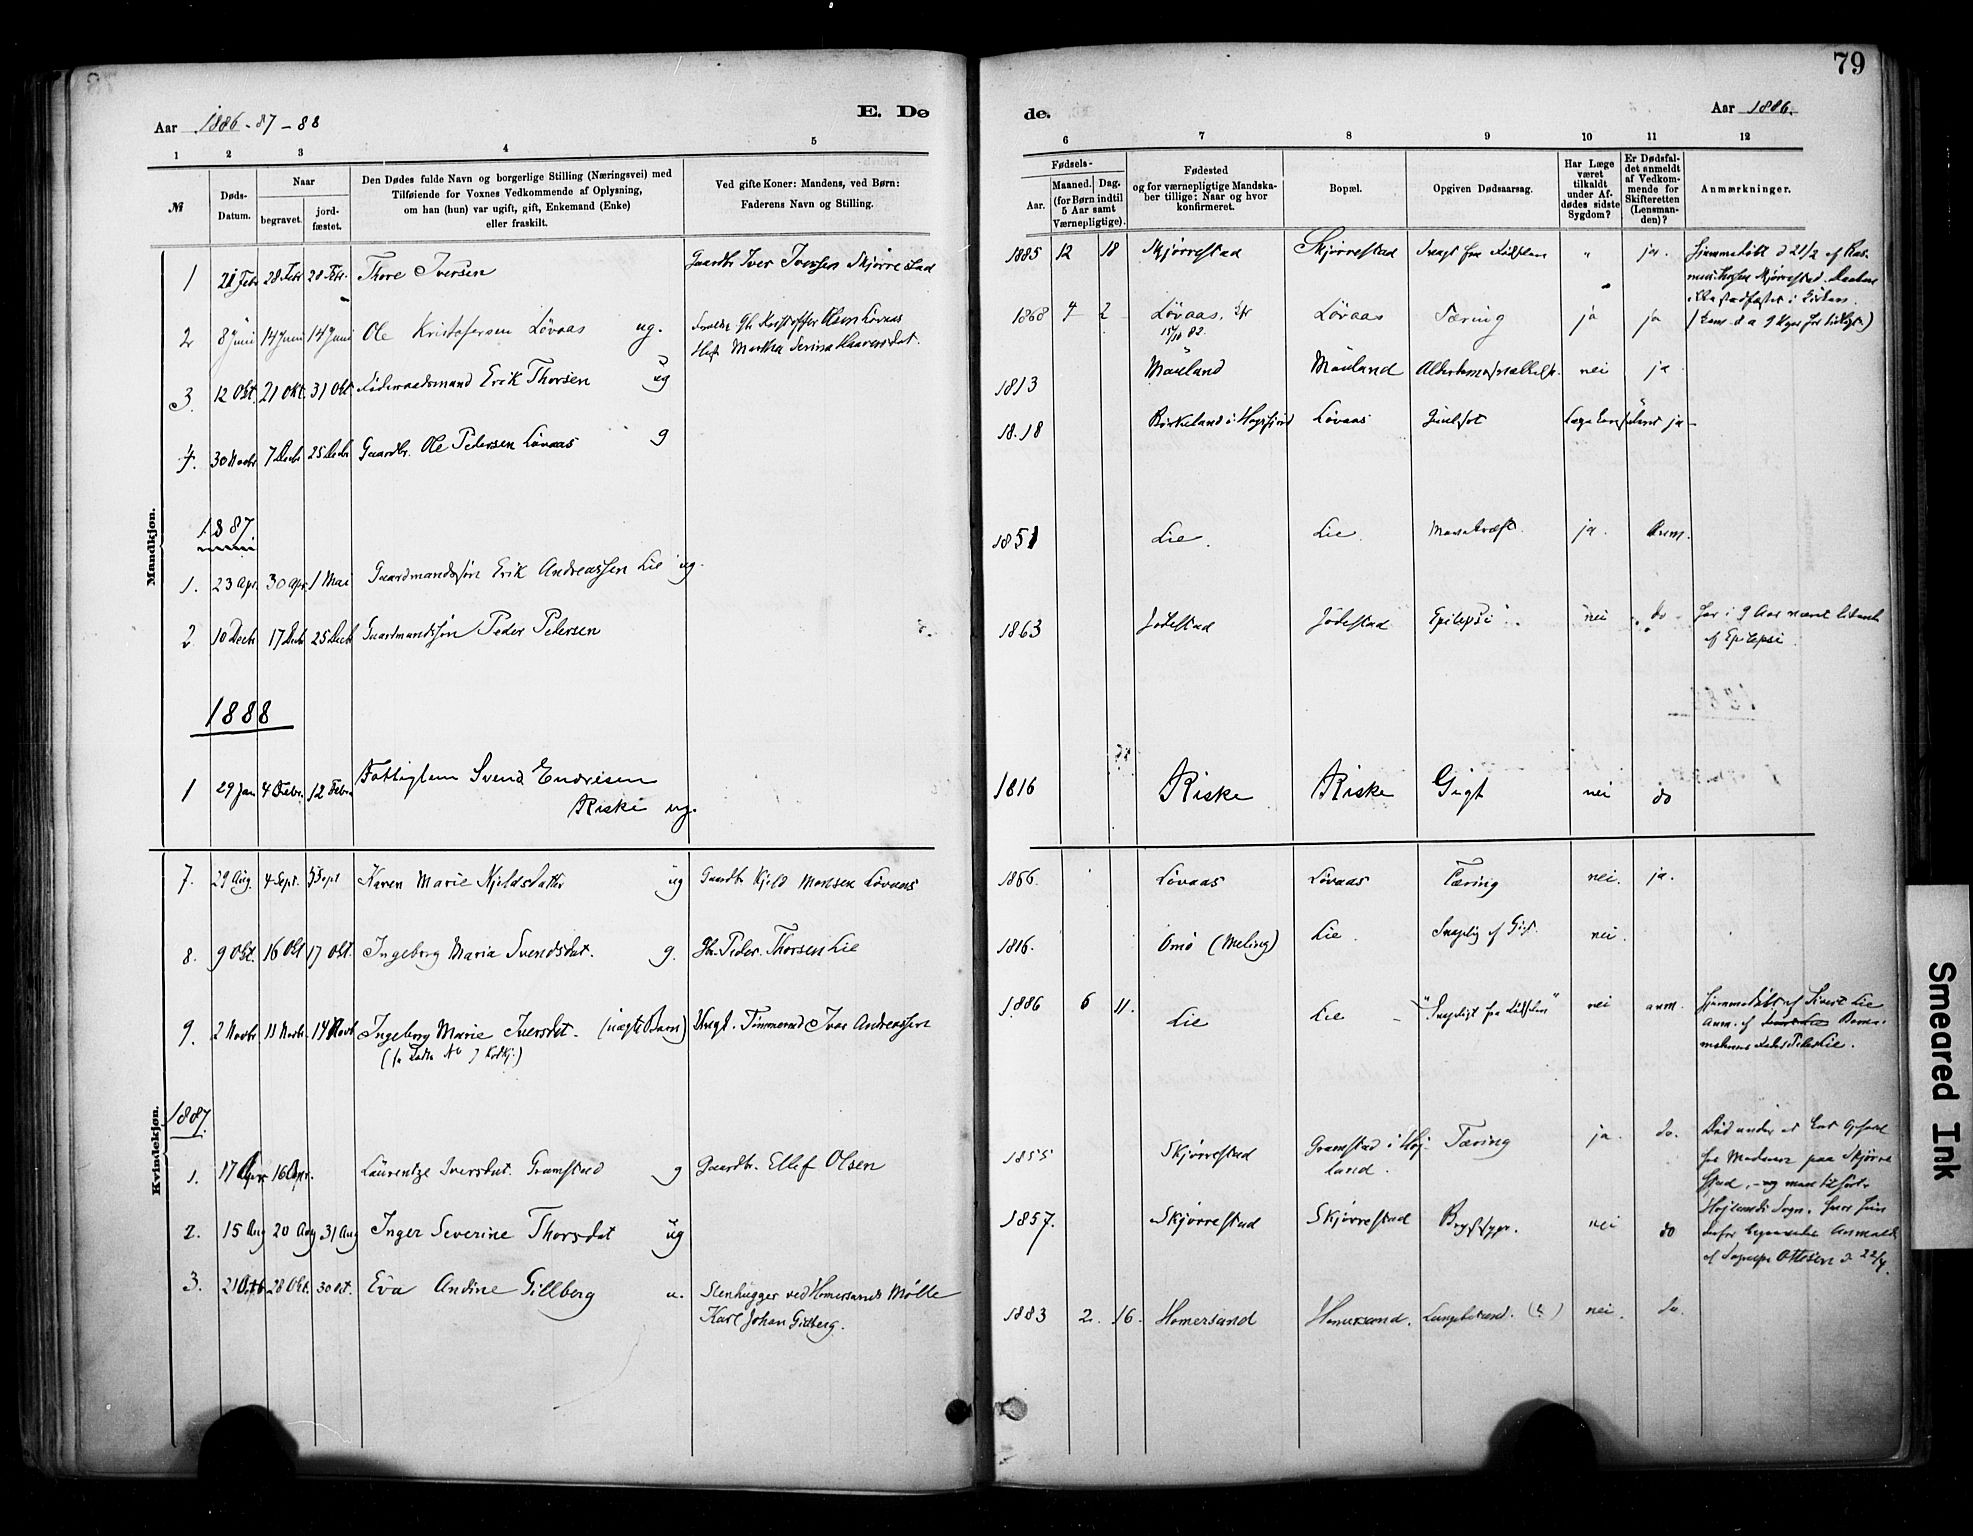 79
Aar 1886-87-88
E. Dø
de.
Aar 1886.
1 2 3 4 5 6 7 8 9 10 11 12
№
Døds-Datum.
Naar
begravet.
jord-fæstet.
Den Dødes fulde Navn og borgerlige Stilling (Næringsvei) med
Tilføiende for Voxnes Vedkommende af Oplysning,
om han (hun) var ugift, gift, Enkemand (Enke)
eller fraskilt.
Ved gifte Koner: Mandens, ved Børn:
Faderens Navn og Stilling.
Fødsels-
Aar.
Maaned. Dag.
(for Børn indtil
5 Aar samt
Værnepligtige).
Fødested
og for værnepligtige Mandska-
ber tillige: Naar og hvor
konfirmeret.
Bopæl.
Opgiven Dødsaarsag.
Har Læge
været
tilkaldt
under Af-
dødes sidste
Sygdom?
Er Dødsfal-
det anmeldt
af Vedkom-
mende for
Skifteretten
(Lensman-
den)?
Anmærkninger.
Mandkjøn.
1 21 Febr 28 Febr 28 Febr. Thore Iversen Gaardbr Iver Iversen Skjørrestad 1885 12 18 Skjørrestad Skjørrestad Svagt fra Fødslen " ja. Hjemmedøbt d 21/2 af Ras-
2 8 Juni 14 Juni 14 Juni Ole Kristofersen Løvaas ug. Kristoffer Olsen Løvaas 1868 4 2 Løvaas, Løvaas Tæring ja ja
15/10 82.
Martha Serina
3. 12 Okt. 21 Okt. 31 Okt Føderaadsmand Erik Thorsen ug 1813 Mæland Mæland nei ja
4. 30 Novbr 7 Decbr 25 Decbr Gaardbr. Ole Pedersen Løvaas g 1818 Birkeland i Høgsfjord Løvaas ja
1887
1. 23 Apr. 30 Apr 1 Mai Gaardmandssøn Erik Andreassen Lie ug. 1851 Lie. Lie. Mavekræft. ja. anm.
2. 10 Decb 17 Decb 25 Decb Gaardmandssøn Peder Pedersen 1863 Jødestad Jødestad Epilepsi nei do har i 9 Aar været lidende
af Epilepsi.
1888
1 29 Jan 4 Febr. 12 Febr Fattiglem Svend Endresen
Riske ug. 1816 Riske Riske Gigt nei do
Kvindekjøn.
7. 29 Aug. 4 Sept. 5 Sept Karen Marie Kjeldsdatter ug Gaardbr Kjeld Monsen Løvaas 1866. Løvaas Løvaas Tæring nei. ja.
8. 9 Okt. 16 Okt 17 Okt. Ingeborg Maria Svendsdat. g. Gbr. Peder Thorsen Lie 1816. Omø (Meling) Lie. Svagelig af Gigt. nei.
9. 2 Novbr 11 Novbr 14 Novb Ingeborg Marie Iversdat. (uægte Barn) Ungk. Tømmermd Ivar Andreassen 1886 6 11. Lie Lie "Svageligt fra Fødslen" nei anm. Hjemmedøbt af Sivert Lie
anm. af
Peder Lie.
1887.
1. 17 Apr 16 Apr. Laurentze Iversdat. Gramstad g Gaardbr. Ellef Olsen 1855 Skjørrestad Gramstad i Høj-
land. Tæring ja. do. Død under et Ophold
hos Moderen paa Skjørre-
stad,
Højlands Sogn,
2. 15 Aug 20 Aug 31 Aug Inger Severine Thorsdat ug 1857. Skjørrestad Skjørrestad Brystsyge. nei do
af Ottesen d 22/4.
3. 21 Oktb 28 Okt. 30 Okt. Eva Andine Gillberg u. Stenhugger ved Homersands Mølle
Karl Johan Gillberg. 1883 2. 16. Homersand Homersand. (?) nei. do.
Smeared Ink